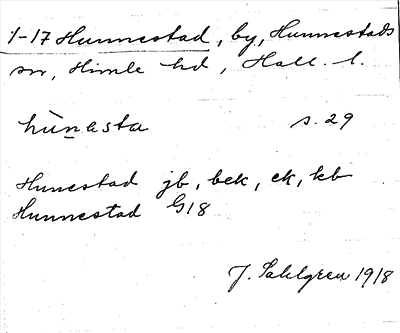 1-17 Hunnestad, by, Hunnestads
sn, Himle hd, Hall. l.
hùnesta s. 29
Hunestad jb, bek, ek, kb
Hunnestad G18
J. Sahlgren 1918